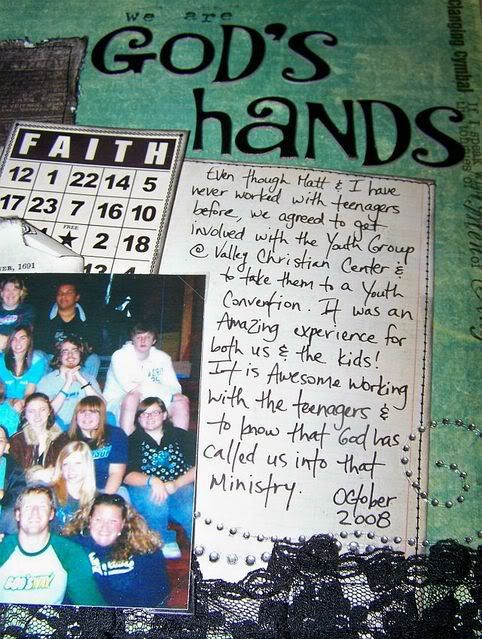 we are
GOD'S
hANDS
FAITH
12 1 22 14 5
17 23 7 16 10
FREE
★ 2 18
13 4
1691
Even though Matt & I have
never worked with teenagers
before, we agreed to get
involved with the Youth Group
@ Valley Christian Center &
to take them to a Youth
Convention. It was an
Amazing experience for
both us & the kids!
It is Awesome working
with the teenagers &
to know that God has
called us into that
Ministry.
October
2008
GOD'S WAY